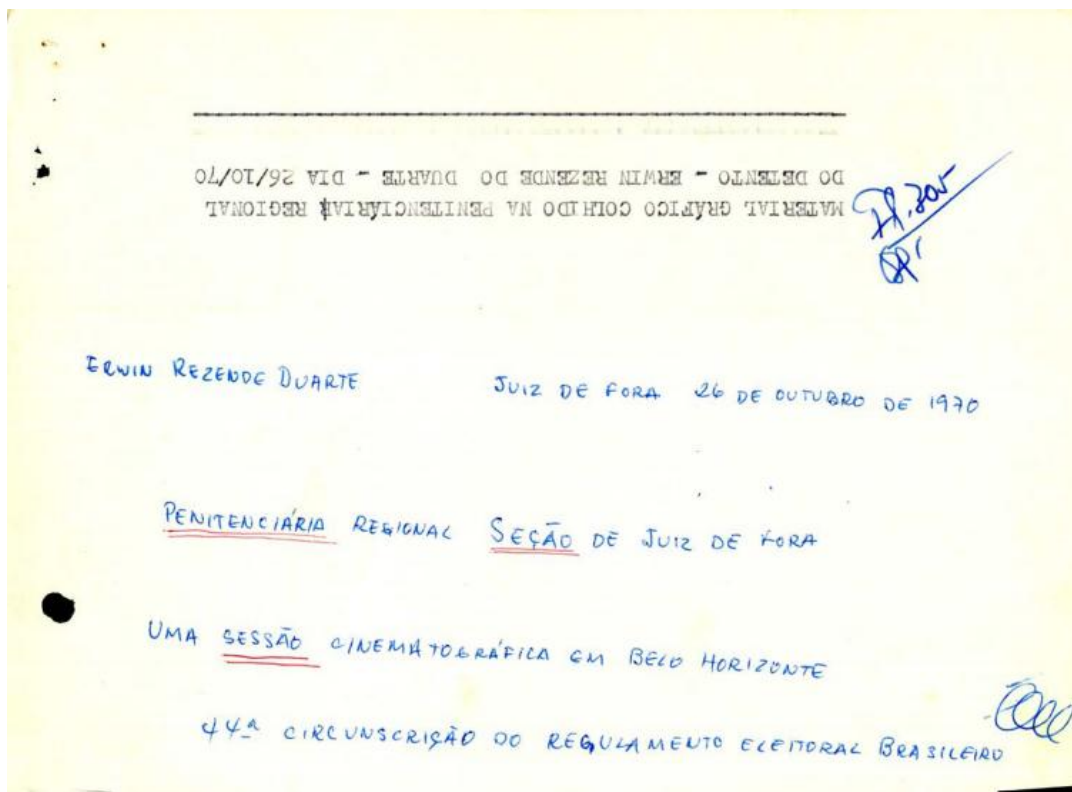 MATERIAL GRÁFICO COLHIDO NA PENITENCIÁRIA REGIONAL
DO DETENTO - ERWIN REZENDE DO DUARTE - DIA 26/10/70
ERWIN REZENDE DUARTE JUIZ DE FORA 26 DE OUTUBRO DE 1970
PENITENCIÁRIA REGIONAL SEÇÃO DE JUIZ DE FORA
UMA SESSÃO CINEMATOGRÁFICA EM BELO HORIZONTE
44ª CIRCUNSCRIÇÃO DO REGULAMENTO ELEITORAL BRASILEIRO